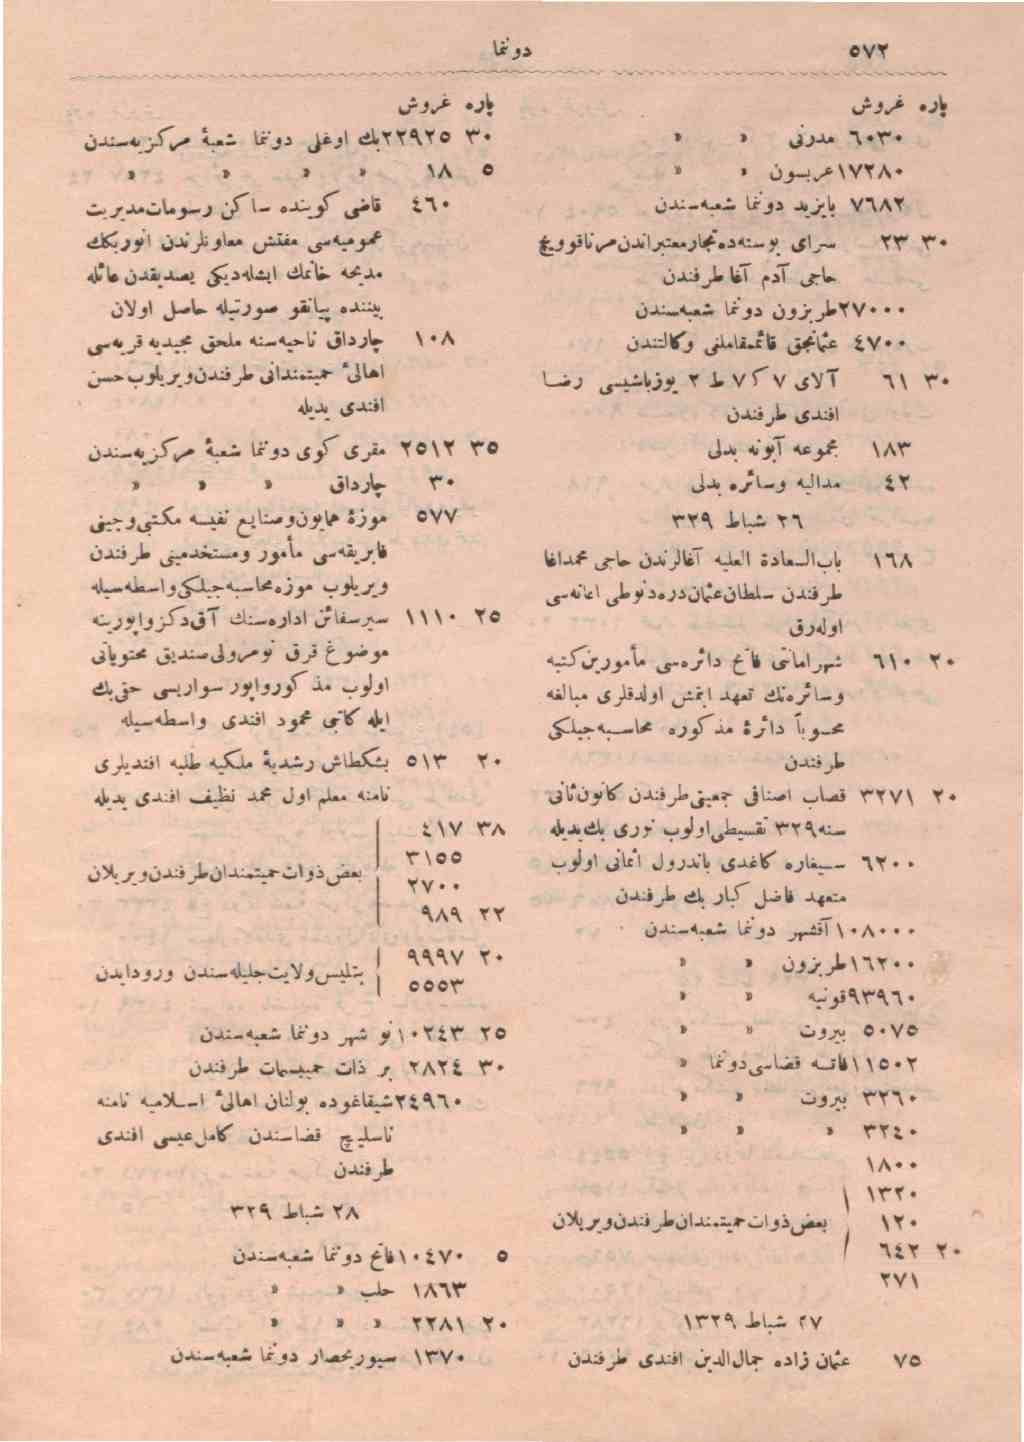 ٥٧٢
دونما
پاره غروش
٦٠٣٠ مدرنی » »
١٧٢٨٠ عربسون » »
٧٦٨٢ بایزید دونما شعبه‌سندن
٣٠ ٢٣ سرای بوسنه‌ده تجار معتبراندن مرناقوویچ
حاجی آدم آغا طرفندن
٢٧٠٠٠ طربزون دونما شعبه‌سندن
٤٧٠٠ عثمانجق قائمقاملغی وکالتندن
٣٠ ٦١ آلای ٧ ک ٧ ط ٢ یوزباشیسی رضا
افندی طرفندن
١٨٣ مجموعه آبونه بدلی
٤٢ مدالیه وسائره بدلی
٢٦ شباط ٣٢٩
١٦٨ باب‌السعادة العلیه آغالرندن حاجی محمداغا
طرفندن سلطان عثمان دره‌دنوطی اعانه‌سی
اوله‌رق
٢٠ ٦١٠ شهر امانتی فاتح دائره‌سی مأمورین کتبه
وسائره‌نك تعهد ایتمش اولدقلری مبالغه
محسوباً دائرۀ مذکوره محاسبه‌جیلکی
طرفندن
٢٠ ٣٢٧١ قصاب اصنافی جمعیتی طرفندن کانون ثانی
سنه ٣٢٩ تقسیطی اولوب نوری بك یدیله
٦٢٠٠ سیغاره کاغدی باندرول اثمانی اولوب
متعهد فاضل کبار بك طرفندن
١٠٨٠٠٠ آقشهر دونما شعبه‌سندن
١٦٢٠٠ طربزون » »
٩٣٩٦٠ قونیه » »
٥٠٧٥ بیروت » »
١١٥٠٢ فاتسه قضاسی دونما »
٣٢٦٠ بیروت » »
٣٢٤٠ » » »
١٨٠٠
١٣٢٠
١٢٠ بعض ذوات حمیتمندان طرفندن ویریلان
٢٠ ٦٤٢
٢٧١
٢٧ شباط ١٣٢٩
٧٥ عثمان زاده جمال‌الدین افندی طرفندن
پاره غروش
٣٠ ٢٢٩٢٥ بك اوغلی دونما شعبۀ مرکزیه‌سندن
٥ ١٨ » » » »
٤٦٠ قاضی کوینده ساکن رسومات مدیریت
عمومیه‌سی مفتش معاونلرندن انوربکك
مدیحه خانمك ایشله‌دیکی یصدیقدن عائله
بیننده پیانقو صورتیله حاصل اولان
١٠٨ چارداق ناحیه‌سنه ملحق مجیدیه قریه‌سی
اهالیٔ حمیتمندانی طرفندن ویریلوب حسن
افندی یدیله
٣٥ ٢٥١٢ مقری کوی دونما شعبۀ مرکزیه‌سندن
٣٠ چارداق » » »
٥٧٧ موزۀ همایون وصنایع نفیسه مکتبی وچینی
فابریقه‌سی مأمور ومستخدمینی طرفندن
ویریلوب موزه محاسبه‌جیلکی واسطه‌سیله
٢٥ ١١١٠ سیرسفائن اداره‌سنك آق‌دکز واپورینه
موضوع قرق نومرولی صندیق محتویاتی
اولوب مذکورواپور سواریسی حقی بك
ایله کاتبی محمود افندی واسطه‌سیله
٢٠ ٥١٣ بشکطاش رشدیۀ ملکیه طلبه افندیلری
نامنه معلم اول محمد نظیف افندی یدیله
٣٨ ٤١٧
٣١٥٥
بعض ذوات حمیتمندان طرفندن ویریلان
٢٧٠٠
٢٢ ٩٨٩
٢٠ ٩٩٩٧
بتلیس ولایت جلیله‌سندن ورودایدن
٥٥٥٣
٢٥ ١٠٢٤٣ نو شهر دونما شعبه‌سندن
٣٠ ٢٨٢٤ بر ذات حمیتسمات طرفندن
٢٤٩٦٠ شیقاغوده بولنان اهالیٔ اسلامیه نامنه
ناسلیچ قضاسندن کامل عیسی افندی
طرفندن
٢٨ شباط ٣٢٩
٥ ١٠٤٧٠ فاتح دونما شعبه‌سندن
١٨٦٣ حلب » »
٢٠ ٢٢٨١ » » »
١٣٧٠ سیوریحصار دونما شعبه‌سندن